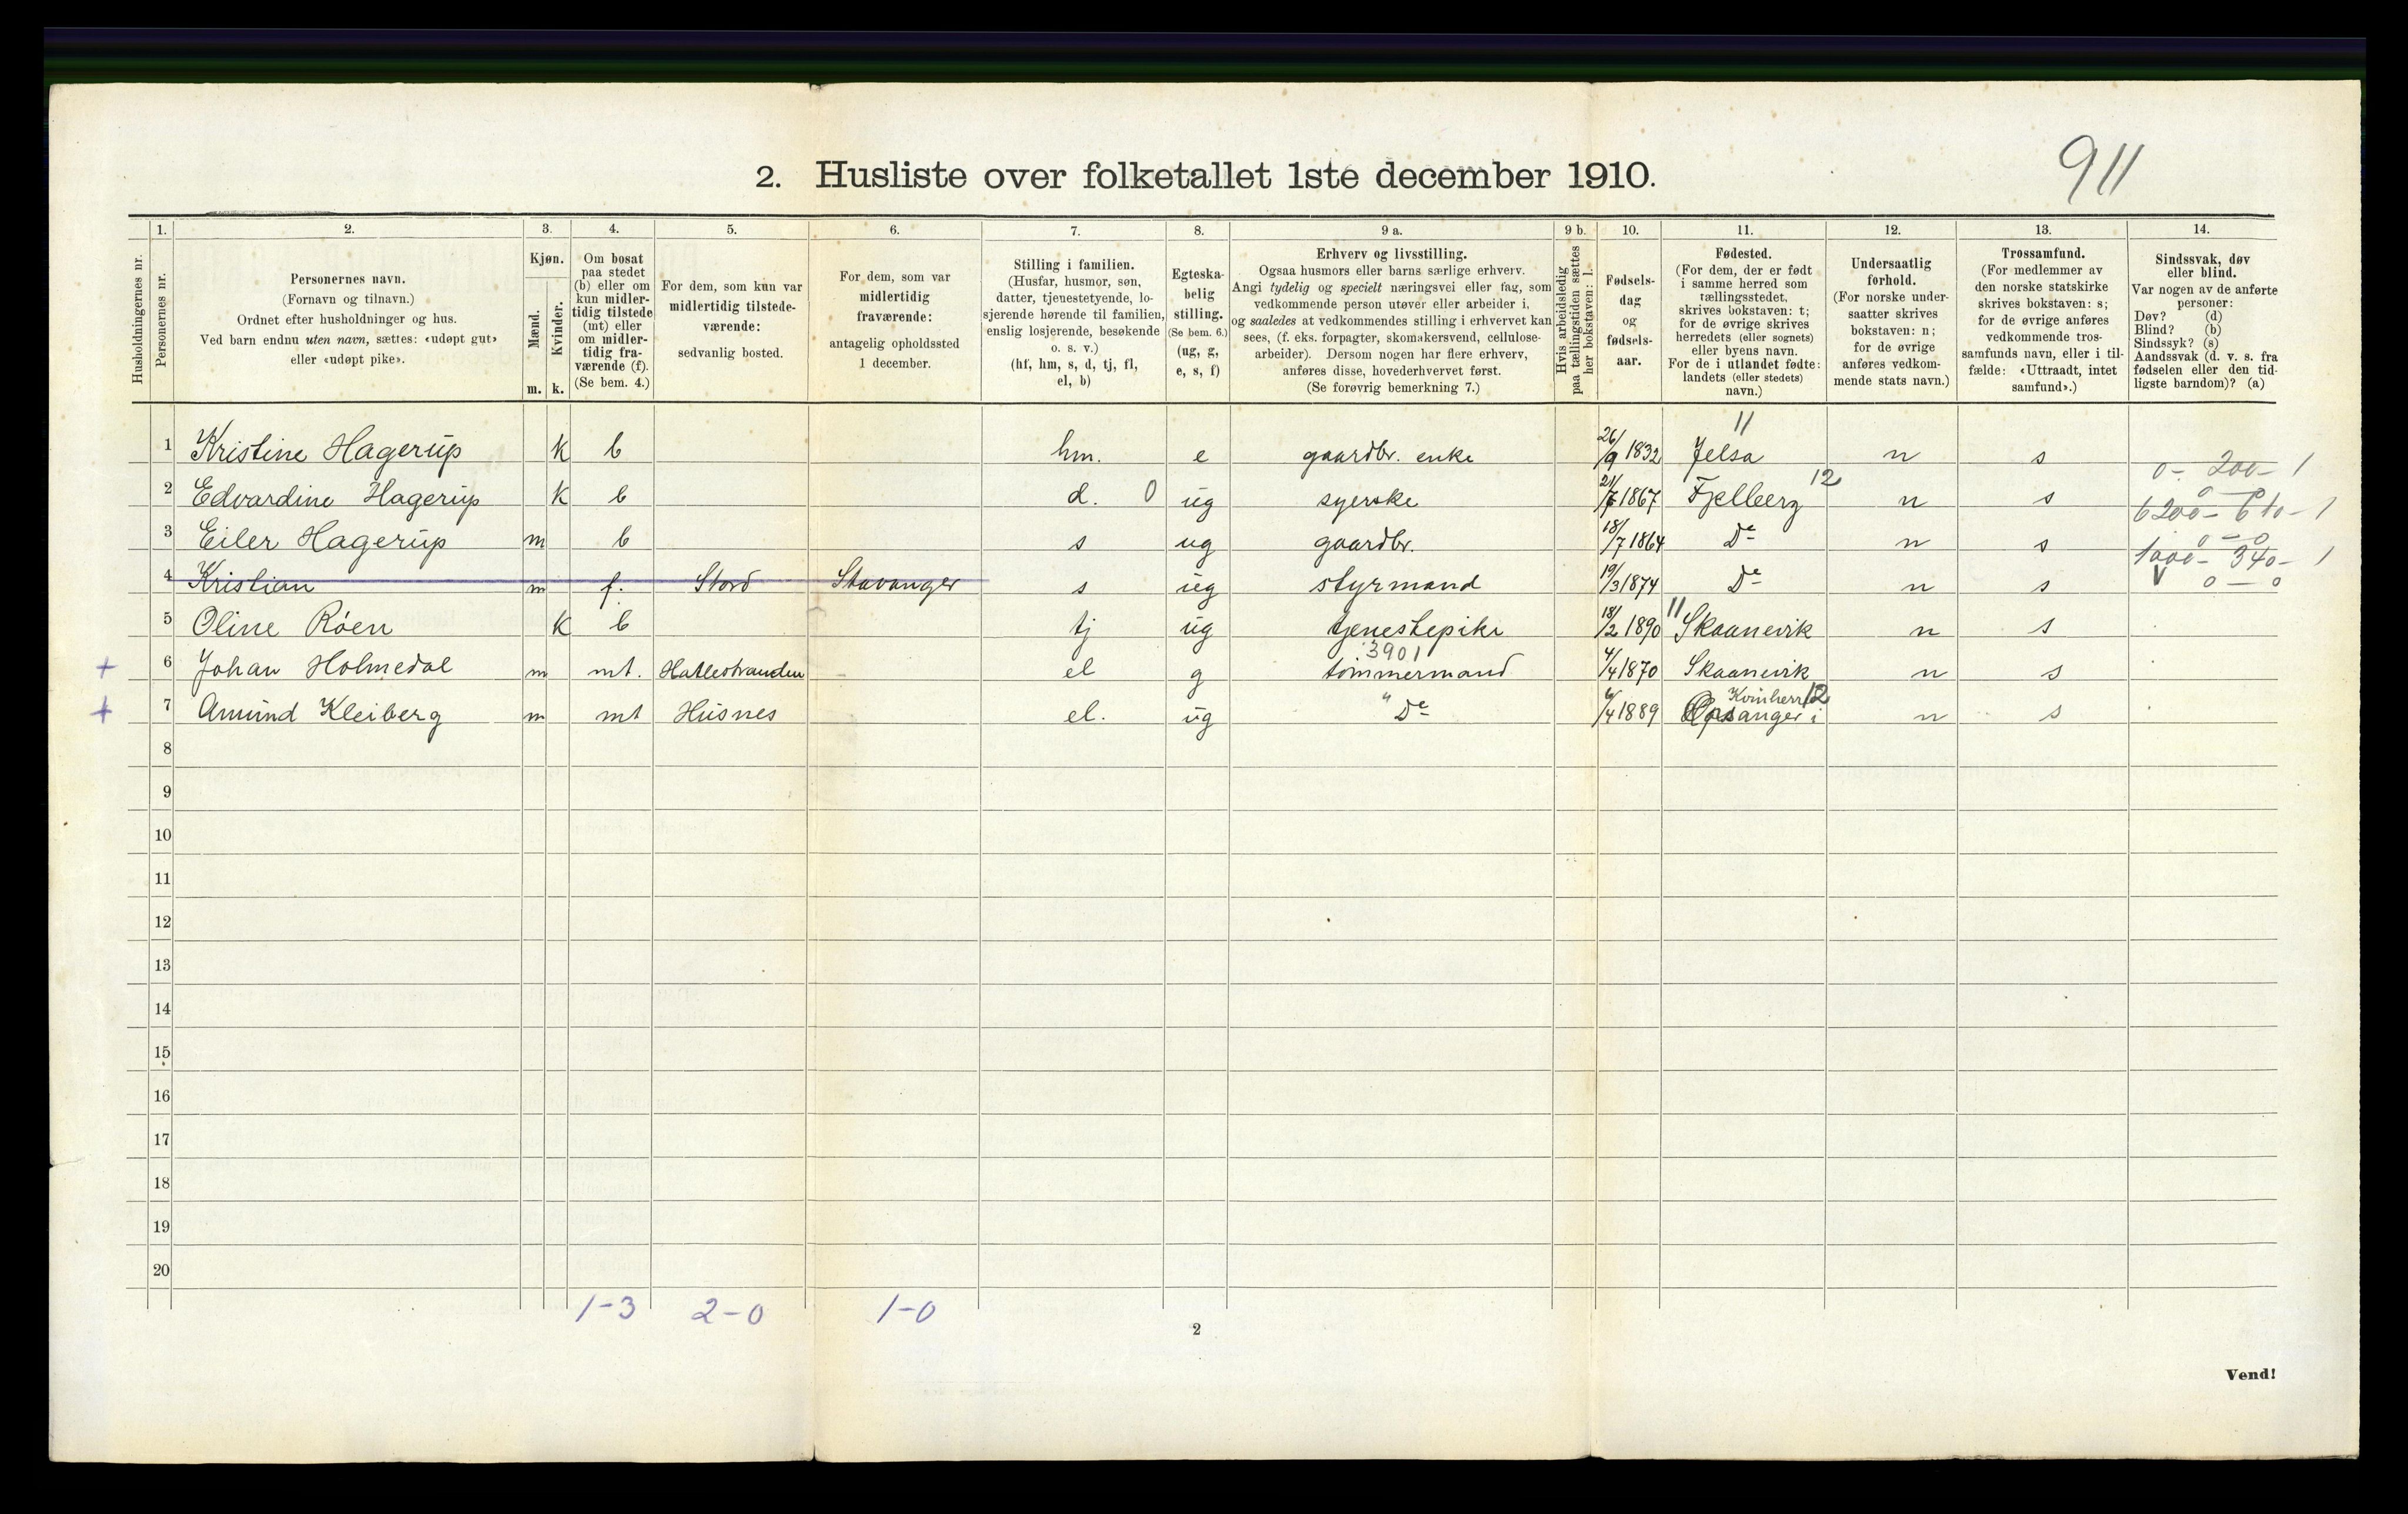 911
2. Husliste over folketallet 1ste december 1910.
Husholdningernes nr.
1.
Personernes nr.
2.
Personernes navn.
(Fornavn og tilnavn.)
Ordnet efter husholdninger og hus.
Ved barn endnu uten navn, sættes: «udøpt gut»
eller «udøpt pike».
3.
Kjøn.
Mænd.
m.
Kvinder.
k.
4.
Om bosat
paa stedet
(b) eller om
kun midler-
tidig tilstede
(mt) eller
om midler-
tidig fra-
værende (f).
(Se bem. 4.)
5.
For dem, som kun var
midlertidig tilstede-
værende:
sedvanlig bosted.
6.
For dem, som var
midlertidig
fraværende:
antagelig opholdssted
1 december.
7.
Stilling i familien.
(Husfar, husmor, søn,
datter, tjenestetyende, lo-
sjerende hørende til familien,
enslig losjerende, besøkende
o. s. v.)
(hf, hm, s, d, tj, fl,
el, b)
8.
Egteska-
belig
stilling.
(Se bem. 6.)
(ug, g,
e, s, f)
9 a.
Erhverv og livsstilling.
Ogsaa husmors eller barns særlige erhverv.
Angi tydelig og specielt næringsvei eller fag, som
vedkommende person utøver eller arbeider i,
og saaledes at vedkommendes stilling i erhvervet kan
sees, (f. eks. forpagter, skomakersvend, cellulose-
arbeider). Dersom nogen har flere erhverv,
anføres disse, hovederhvervet først.
(Se forøvrig bemerkning 7.)
9 b.
Hvis arbeidsledig
paa tællingstiden sættes
her bokstaven: l.
10.
Fødsels-
dag
og
fødsels-
aar.
11.
Fødested.
(For dem, der er født
i samme herred som
tællingsstedet,
skrives bokstaven: t;
for de øvrige skrives
herredets (eller sognets)
eller byens navn.
For de i utlandet fødte:
landets (eller stedets)
navn.)
12.
Undersaatlig
forhold.
(For norske under-
saatter skrives
bokstaven: n;
for de øvrige
anføres vedkom-
mende stats navn.)
13.
Trossamfund.
(For medlemmer av
den norske statskirke
skrives bokstaven: s;
for de øvrige anføres
vedkommende tros-
samfunds navn, eller i til-
fælde: «Uttraadt, intet
samfund».)
14.
Sindssvak, døv
eller blind.
Var nogen av de anførte
personer:
Døv? (d)
Blind? (b)
Sindssyk? (s)
Aandssvak (d. v. s. fra
fødselen eller den tid-
ligste barndom)? (a)
11
1 Kristine Hagerup k b hm. e gaardbr. enke 26/9 1832 Jelsa n s
0 - 200 - 1
2 Edvardine Hagerup k b d. 0 ug syerske 21/7 1867 Fjelberg 12 n s 0 - 0
6200 - 640 - 1
3 Eiler Hagerup m b s ug gaardbr. 18/7 1864 De n s 0 - 0
1000 - 340 - 1
4 Kristian m f. Stord Stavanger s ug styrmand 19/3 1874 De n s V 0 - 0
5 Oline Röen k b tj ug tjenestepike 18/2 1890 11 Skaanevik n s
3901
+ 6 Johan Holmedal m mt. Hatlestranden el g tömmermand 4/4 1870 Skaanevik n s
Kvinherr 12
+ 7 Amund Kleiberg m mt Husnes el. ug " De 6/4 1889 Opsanger i n s
8
9
10
11
12
13
14
15
16
17
18
19
20
1-3 2-0 1-0
2
Vend!